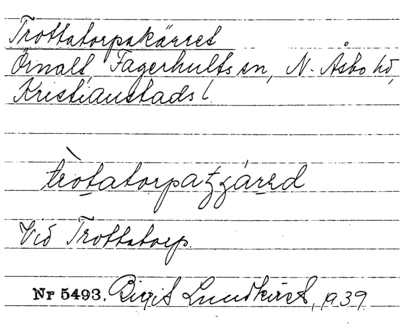 Trottatorpakärret
Örnalt, Fagerhults sn, N. Åsbo hd,
Kristianstads l.
tròtatorpatʒárəd
Vid Trottatorp.
Nr 5493. Birgit Lundkvist, 1939.